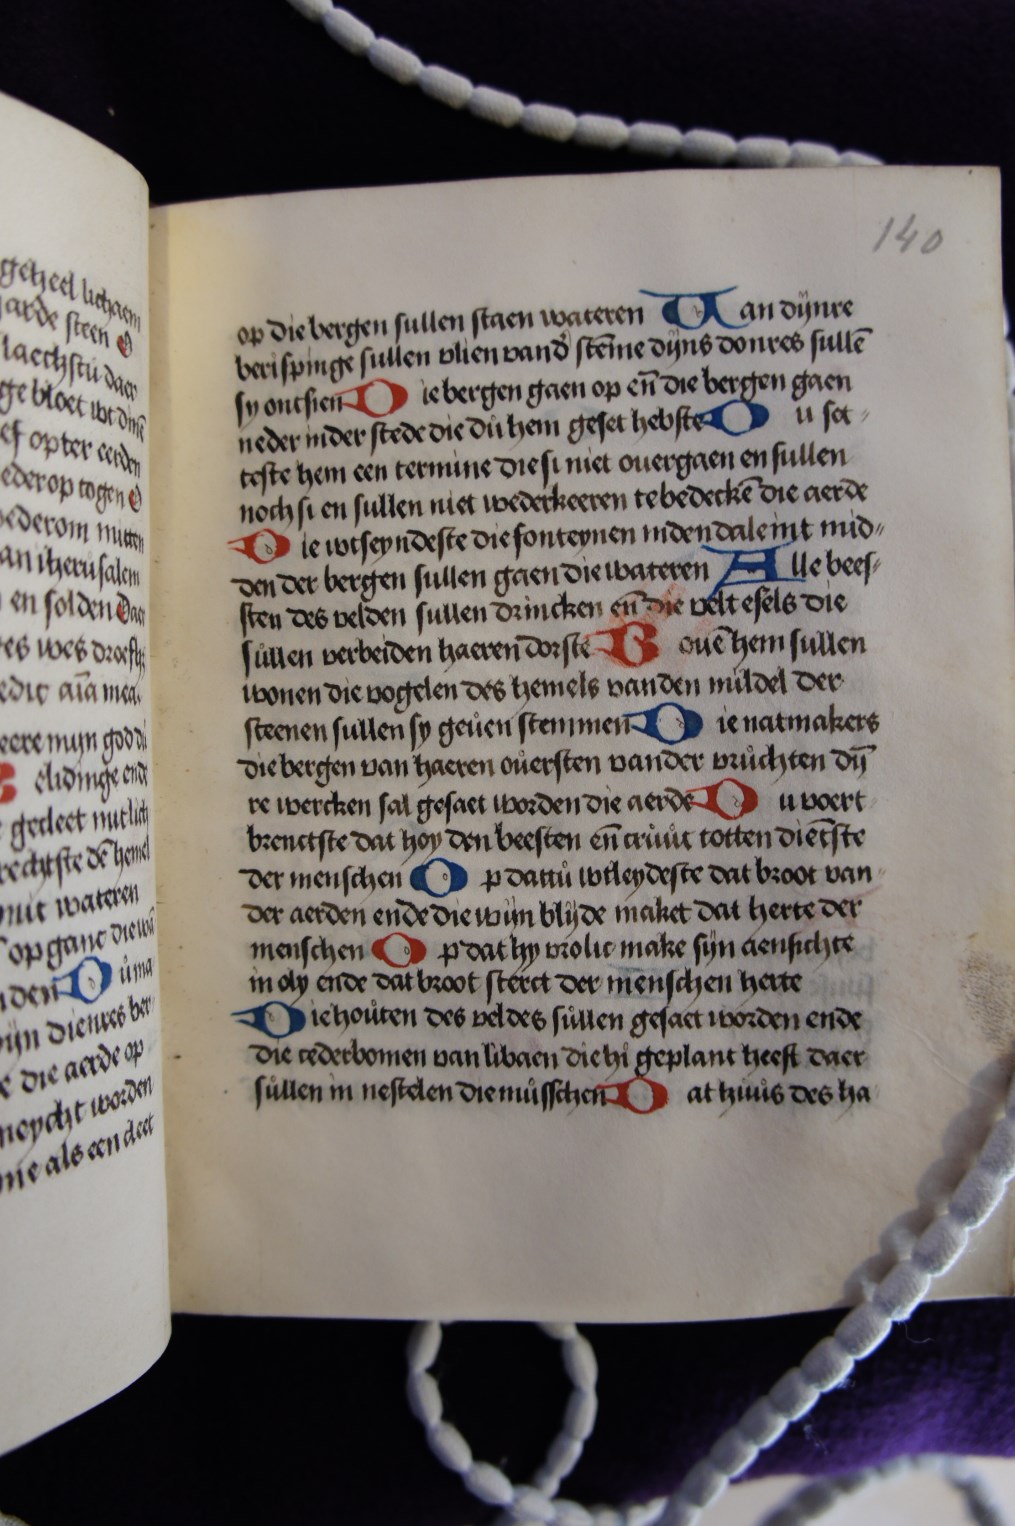 geheel lichaem
aerde steen D
laechstu daer
ge bloet wt dinē
ef opter eerden
eder op togen D
wederom mitten
an iherusalem
en solden Daer
es woes droefh
edic aīa mea.
eere mijn god du
elidinge ende
gecleet mit lich
rechtste dē hemel
mit wateren
op ganc die wi
nden D u ma
ijn dienres ber
e die aerde op
neycht worden
me als een cleet
140
op die bergen sullen staen wateren Uan dÿnre
berispinge sullen vlien vand stēme dÿns donres sullē
sy ontsien Die bergen gaen op en̄ die bergen gaen
neder inder stede die dů hem geset hebste Du set
teste hem een termine die si niet ouergaen en sullen
noch si en sullen niet wederkeeren te bedeckē die aerde
Die wtseyndeste die fonteynen inden dale int mid
den der bergen sullen gaen die wateren Alle bees
sten des velden sullen drincken en̄ die velt esels die
sůllen verbeiden haeren dorste Bouē hem sullen
wonen die vogelen des hemels van den middel der
steenen sullen sy geůen stemmen Die natmakers
die bergen van haeren oůersten vander vrůchten dÿ
re wercken sal gesaet worden die aerde Du voert
brenctste dat hoy den beesten en̄ crůůt totten diētste
der menschen Op dattů wtleydeste dat broot van
der aerden ende die wijn blijde maket dat herte der
menschen Op dat hy vrolic make sijn aensichte
in oly ende dat broot sterct der menschen herte
Die hoůten des veldes sůllen gesaet worden ende
die cederbomen van libaen die hi geplant heeft daer
sůllen in nestelen die můsschen Dat huůs des ha